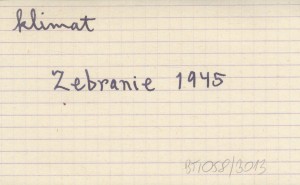 klimat
Zebranie 1945
BTIOSP/3013